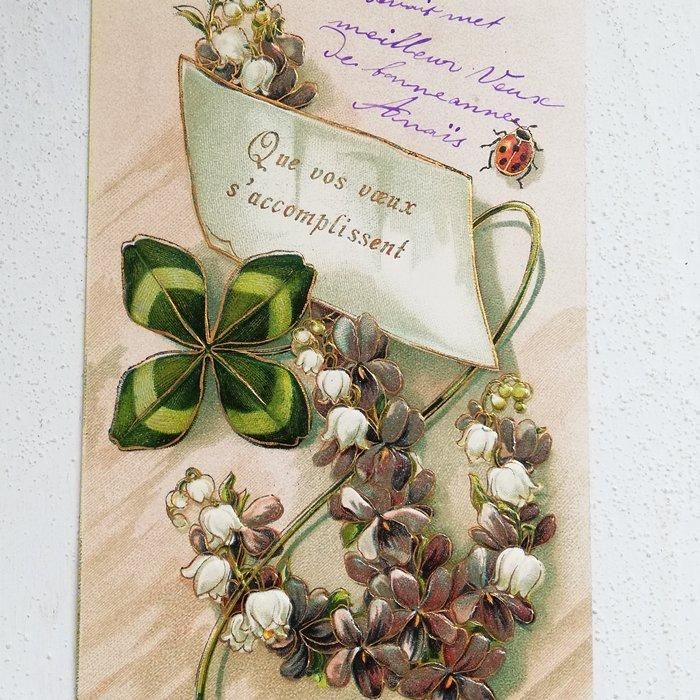 met
meilleur Veux
De bonne annee
Anaïs
Que vos vœux
s'accomplissent